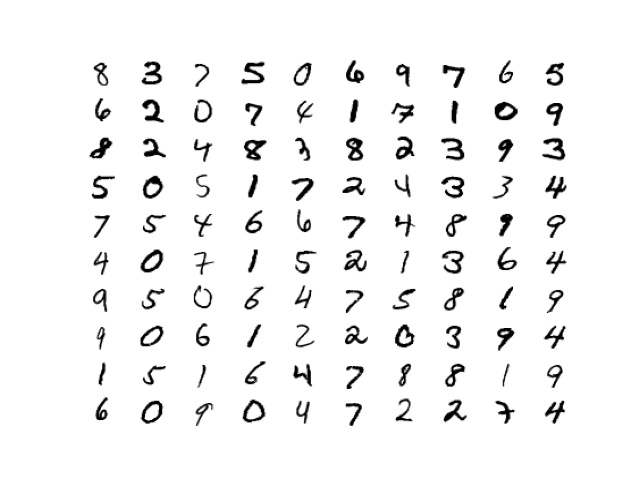 8 3 7 5 0 6 9 7 6 5
6 2 0 7 4 1 7 1 0 9
8 2 4 8 3 8 2 3 9 3
5 0 5 1 7 2 4 3 3 4
7 5 4 6 6 7 4 8 9 9
4 0 7 1 5 2 1 3 6 4
9 5 0 6 4 7 5 8 1 9
9 0 6 1 2 2 0 3 9 4
1 5 1 6 4 7 8 8 1 9
6 0 9 0 4 7 2 2 7 4